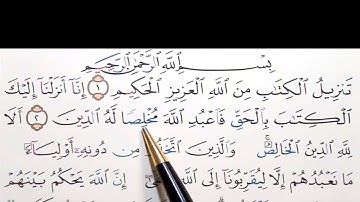 بِسْمِ ٱللَّهِ ٱلرَّحْمَٰنِ ٱلرَّحِيمِ
تَنزِيلُ ٱلْكِتَٰبِ مِنَ ٱللَّهِ ٱلْعَزِيزِ ٱلْحَكِيمِ ١ إِنَّآ أَنزَلْنَآ إِلَيْكَ
ٱلْكِتَٰبَ بِٱلْحَقِّ فَٱعْبُدِ ٱللَّهَ مُخْلِصًا لَّهُ ٱلدِّينَ ٢ أَلَا
لِلَّهِ ٱلدِّينُ ٱلْخَالِصُ ۚ وَٱلَّذِينَ ٱتَّخَذُوا۟ مِن دُونِهِۦٓ أَوْلِيَآءَ
مَا نَعْبُدُهُمْ إِلَّا لِيُقَرِّبُونَآ إِلَى ٱللَّهِ إِنَّ ٱللَّهَ يَحْكُمُ بَيْنَهُمْ